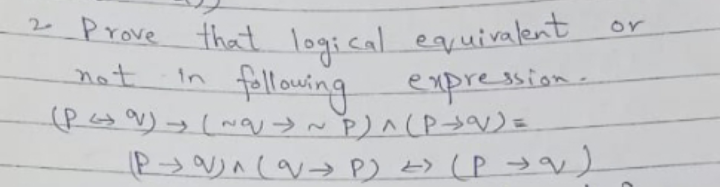 2. Prove that logical equivalent or
not in following expression.
(P ↔ q) → (~q → ~P) ∧ (P → q) =
(P → q) ∧ (q → P) ↔ (P → q)